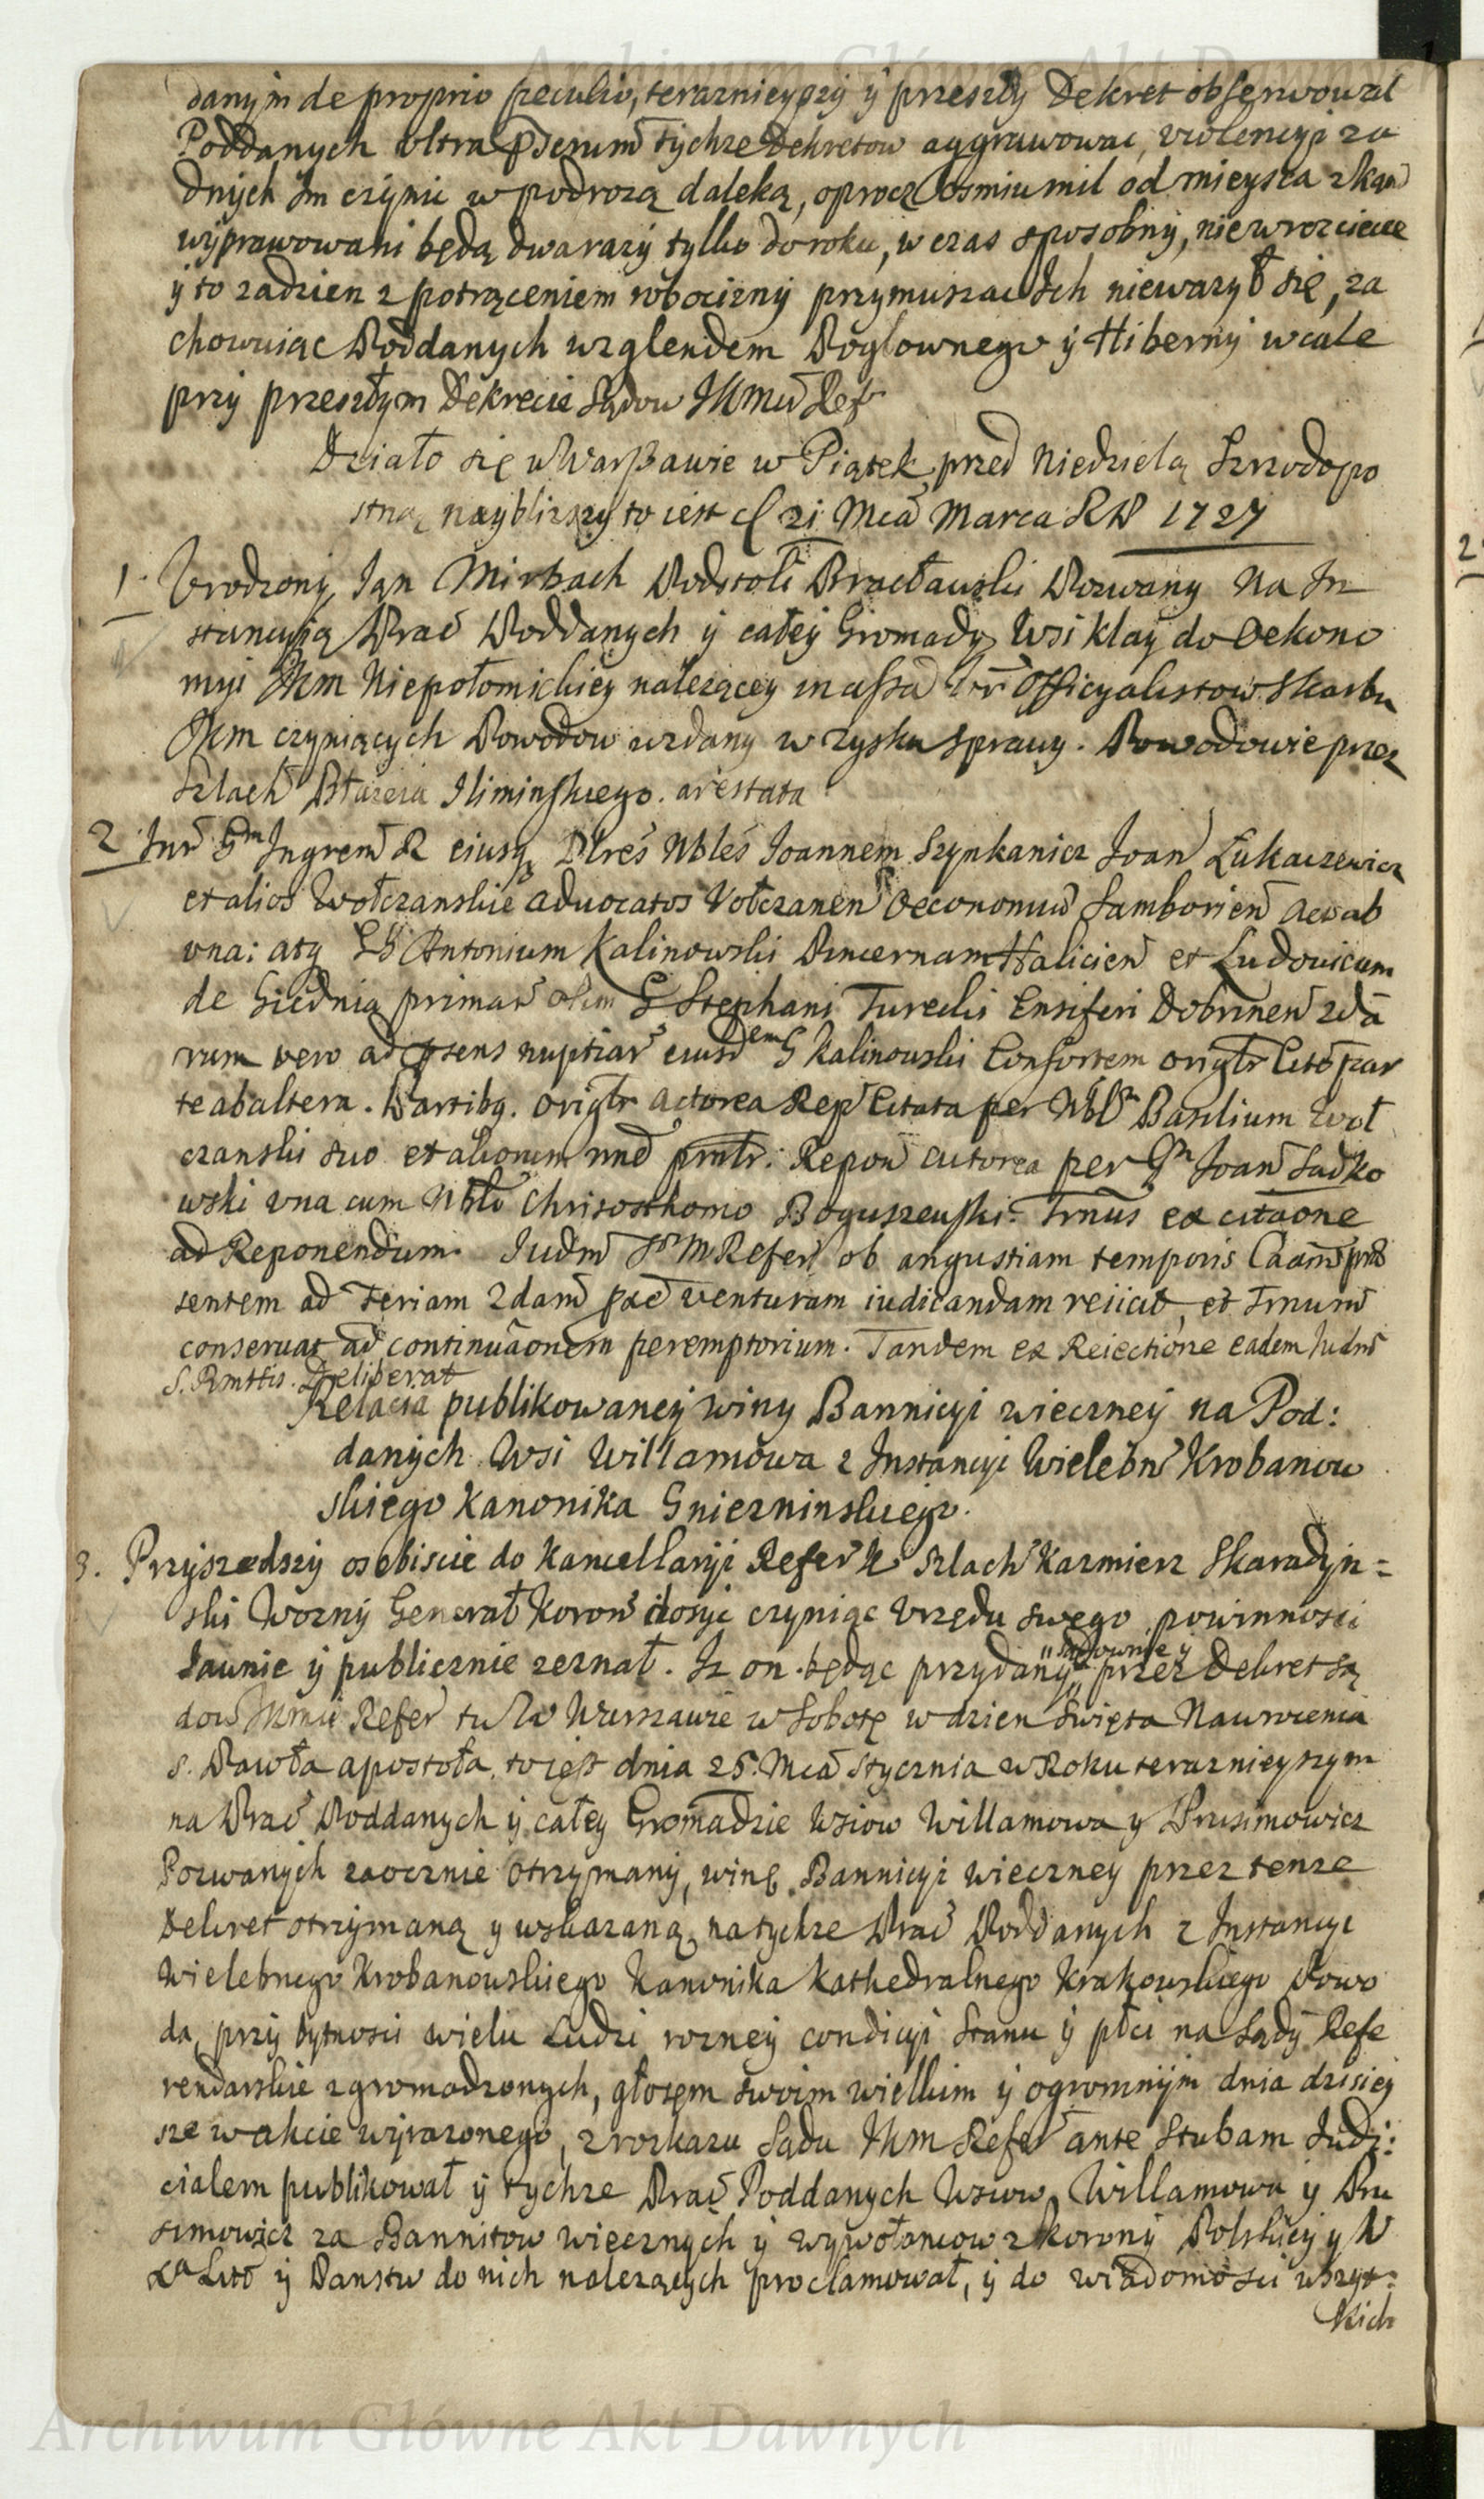 Archiwum Główne Akt Dawnych
danym de proprio peculio, teraznieyszy ÿ przeszły Dekret obserwował
Poddanych ultra tychze Dekretow aggrawowac, violencyi za
dnych Im czÿnic w podrozą daleką, oprocz osmiu mil od mieysca zkąd
wÿprawowani będą dwa razÿ tylko do roku, w czas sposobnÿ, niewrozciecze
ÿ to zadzien z potrąceniem robociznÿ przymuszac Ich niewazył się, za
chowuiąc Poddanych wzglendem Pogłownego ÿ Hibernÿ wcale
przÿ przeszłym Dekrecie Sądow JKmci Ref
Działo się w Warszawie w Piątek przed Niedzielą Szrodopo
stną naybliższÿ to iest d 21 Mca Marca RP 1727
1. Urodzony Jan Mirbach Podstoli Bracławski Pozwany na In
stancyią Prac Poddanych ÿ całeÿ Gromady Wsi Kłaÿ do Oekono
myi JKm Niepołomickieÿ należącey in assa Ur Officyalistow Skarbu
JKm czyniących Powodow wzdany w zysku sprawy. Powodowie przez
Szlach Błazeia Iliminskiego. arestata
2 Inr Gm Ingrem R eiusq Dlres Nbles Joannem Szynkanicz Joan Łukaczewicz
et alios Wołczanskie advocatos Vołczanen Oeconomiae Samborien Ac ab
una: atq Antonium Kalinowski Pincernam Halicien et Ludovicam
de Giednia primar olim G Stephani Turecki Ensiferi Dobrinen 2da
rum vero ad psens nuptiar eiusdem G Kalinowski Consortem origlr Cito par
te ab altera. Partibq. origlr actorea Rep Citata per Nblm Basilium Woł
czanski suo et aliorum nne pmtr. Repon actorea per Gm Joan Sadko
wski una cum Nbli Chrisosthomo Boguszewski. Trnus ex citaone
ad Reponendum. Iudm Sr M Refer ob angustiam temporis Caam prae
sentem ad Feriam 2dam pxe venturam iudicandam reiicit, et Trnum
conservat ad continuaonem peremptorium. Tandem ex Reiectione eadem Iudm
S. R mttis. Deliberat
Relacia publikowaneÿ winy Bannicyi wieczneÿ na Pod:
danych Wsi Willamowa z Instancyi Wielebn Krobanow
skiego Kanonika Gnieznınskiego.
3. Przÿszedszÿ osobiscie do Kancellaryi Refer K Szlach Kazmierz Skaradyn=
ski Woznÿ Generał Koron dosÿc czyniąc Urzędu swego powinnosci
Iawnie ÿ publicznie zeznał. Iz on będąc przydanÿ przez Dekret Są
„sądownie ÿ
dow JKmci Refer tu w Warszawie w Sobotę w dzien Swięta Nawrocenia
S. Pawła apostoła, to iest dnia 25. Mca Stycznia w Roku teraznieyszym
na Prac Poddanych ÿ całeÿ Gromadzie Wsiow Willamowa y Prusimowicz
Pozwanych zaocznie otrzymanÿ, winę Bannicyi wieczney przez tenze
Dekret otrzymaną y wskazaną, na tychze Prac Poddanych z Instancyi
Wielebnego Krobanowskiego Kanonika Kathedralnego Krakowskiego Powo
da, przÿ bytnosci wielu Ludzi rozneÿ condicyi Stanu ÿ płci na Sądÿ Refe
rendarskie zgromadzonych, głosem swoim wielkim ÿ ogromnÿm dnia dzisiey
sze w akcie wÿrazonego, z rozkazu Sądu JKm Refer ante Stubam Iudi:
cialem publikował ÿ tychze Prac Poddanych Wsiow Willamowa ÿ Pru
simowicz za Bannitow wiecznych ÿ wywołancow z Koronÿ Polskieÿ y W
Xa Litt ÿ Panstw do nich nalezących proclamował, ÿ do wiadomosci wszyt:
kich
Archiwum Główne Akt Dawnych